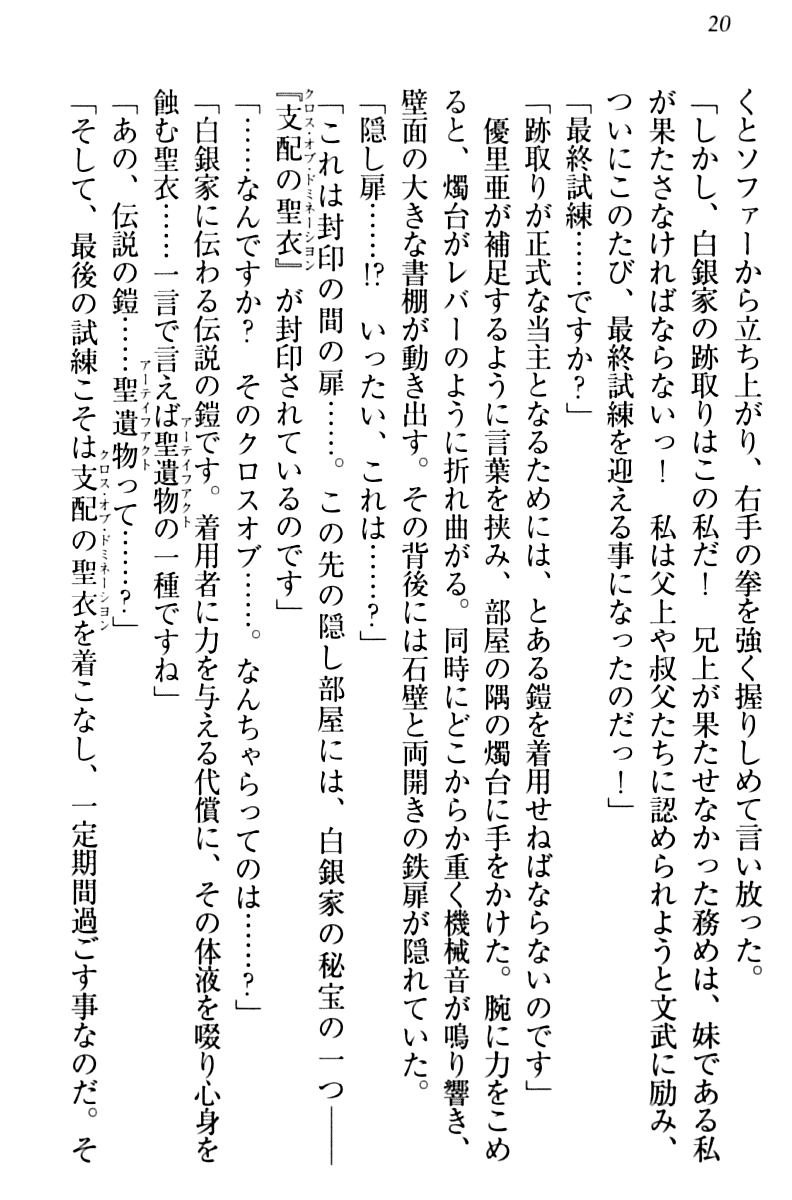 20
くとソファーから立ち上がり、右手の拳を強く握りしめて言い放った。
「しかし、白銀家の跡取りはこの私だ！　兄上が果たせなかった務めは、妹である私
が果たさなければならないっ！　私は父上や叔父たちに認められようと文武に励み、
ついにこのたび、最終試練を迎える事になったのだっ！」
「最終試練……ですか？」
「跡取りが正式な当主となるためには、とある鎧を着用せねばならないのです」
　優里亜が補足するように言葉を挟み、部屋の隅の燭台に手をかけた。腕に力をこめ
ると、燭台がレバーのように折れ曲がる。同時にどこからか重く機械音が鳴り響き、
壁面の大きな書棚が動き出す。その背後には石壁と両開きの鉄扉が隠れていた。
「隠し扉……!?　いったい、これは……？」
「これは封印の間の扉……。この先の隠し部屋には、白銀家の秘宝の一つ――
クロス・オブ・ドミネーション
『支配の聖衣』が封印されているのです」
「……なんですか？　そのクロスオブ……。なんちゃらってのは……？」
「白銀家に伝わる伝説の鎧です。着用者に力を与える代償に、その体液を啜り心身を
アーティファクト
蝕む聖衣……一言で言えば聖遺物の一種ですね」
アーティファクト
「あの、伝説の鎧……聖遺物って……？」
クロス・オブ・ドミネーション
「そして、最後の試練こそは支配の聖衣を着こなし、一定期間過ごす事なのだ。そ